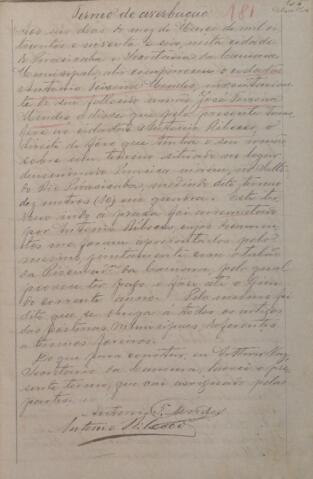 Termo de averbação
181
Aos seis dias do mez de Março de mil oi
tocentos e noventa e seis, nesta cidade
de Piracicaba e Secretaria da Camara
Municipal, ahi compareceu o cidadão
Antonio Teixeira Mendes, inventariante
de seu fallecido irmão José Teixeira
Mendes e disse que pelo presente
ao cidadão Antonio Ribecco, o
direito de fôro que tinha o seu irmão
sobre um terreno situado no lugar
denominado
Rio Piracicaba, medindo
dez metros (10) em quadra. Este ter
reno indo a praça foi arrematado
por Antonio Ribecco, cujos documen
tos me foram apresentados pelo
mesmo, juntamente com o talão
da Camara, pelo qual
provou ter pago o fôro até o fim
do corrente anno. Pelo mesmo foi
dito que se obriga a todos os artigos
das posturas Municipaes referentes
a terrenos foreiros.
Do que para constar, eu
Secretario da Camara, lavrei o pre
sente termo, que vai assignado pelas
partes.
Antonio T. Mendes
Antonio Ribecco